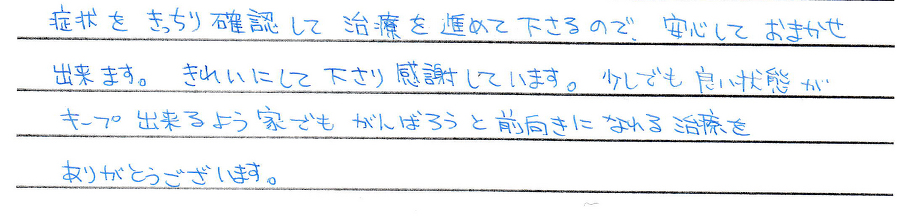 症状をきっちり確認して治療を進めて下さるので、安心しておまかせ
出来ます。きれいにして下さり感謝しています。少しでも良い状態が
キープ出来るよう家でもがんばろうと前向きになれる治療を
ありがとうございます。